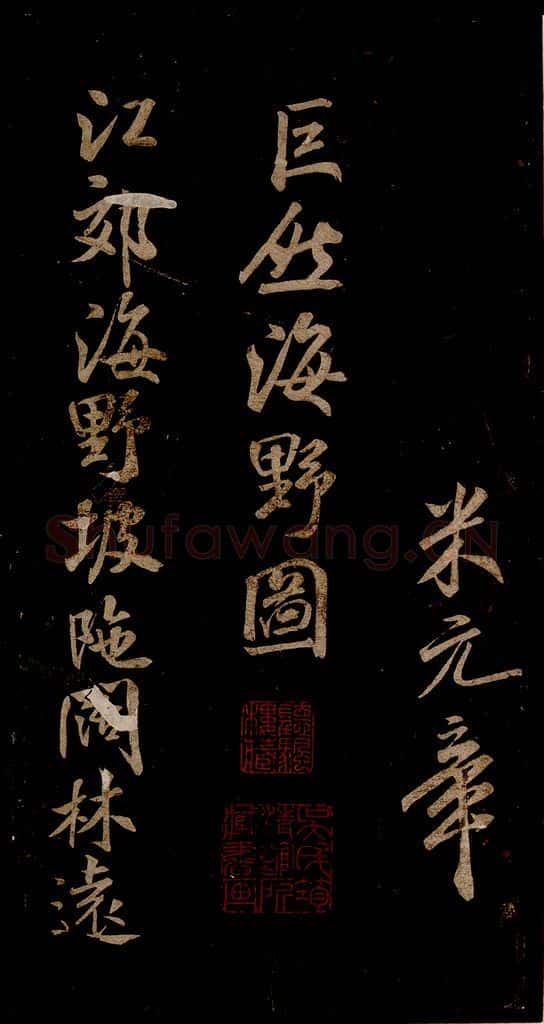 米元章
巨然海野圖
江郊海野坡陁闊林遠
Shufawang.cn